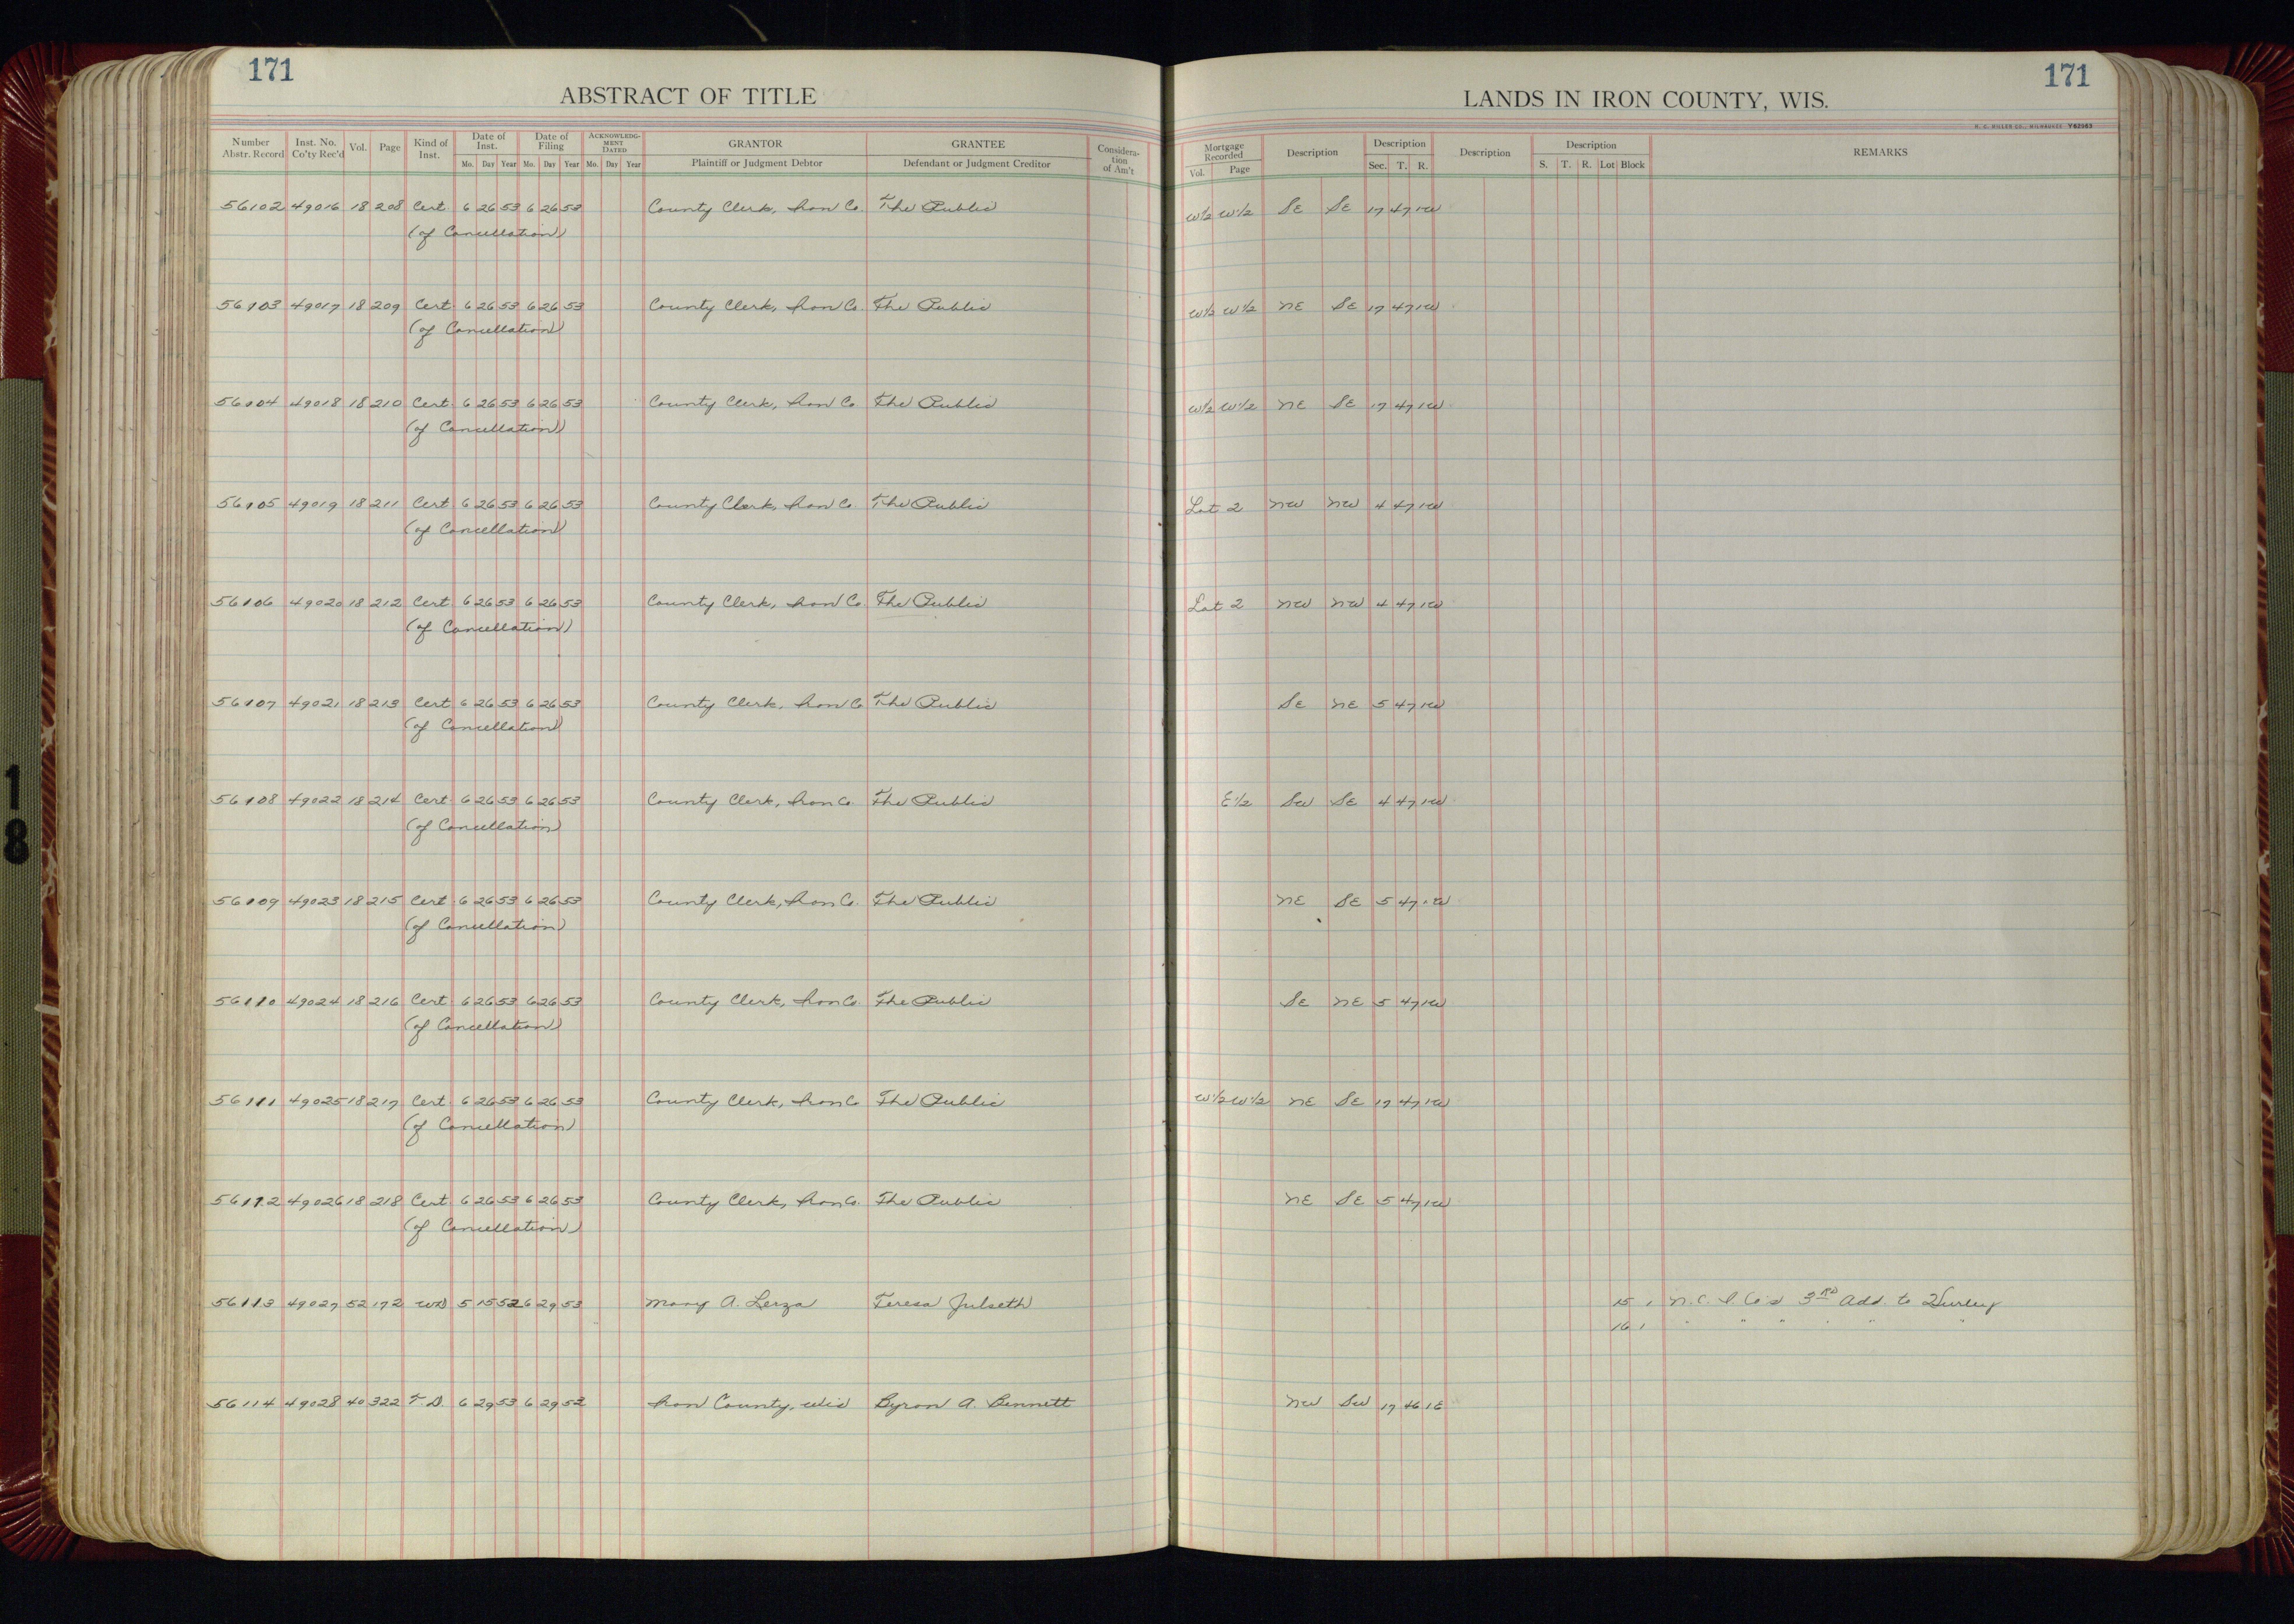 171
171
ABSTRACT OF TITLE
LANDS IN IRON COUNTY, WIS.
H. C. MILLER CO., MILWAUKEE Y62963
Number Abstr. Record Inst. No. Co'ty Rec'd Vol. Page Kind of Inst. Date of Inst. Mo. Day Year Date of Filing Mo. Day Year ACKNOWLEDGMENT DATED Mo. Day Year GRANTOR Plaintiff or Judgment Debtor GRANTEE Defendant or Judgment Creditor Consideration of Am't Mortgage Recorded Vol. Page Description Description Sec. T. R. Description Description S. T. R. Lot Block REMARKS
56102 49016 18 208 Cert. 6 26 53 6 26 53 County Clerk, Iron Co. The Public W1/2 W1/2 SE SE 17 47 1W
(of Cancellation)
56103 49017 18 209 Cert. 6 26 53 6 26 53 County Clerk, Iron Co. The Public W1/2 W1/2 NE SE 17 47 1W
(of Cancellation)
56104 49018 18 210 Cert. 6 26 53 6 26 53 County Clerk, Iron Co The Public W1/2 W1/2 NE SE 17 47 1W
(of Cancellation)
56105 49019 18 211 Cert. 6 26 53 6 26 53 County Clerk, Iron Co. The Public Lot 2 NW NW 4 47 1W
(of Cancellation)
56106 49020 18 212 Cert. 6 26 53 6 26 53 County Clerk, Iron Co. The Public Lot 2 NW NW 4 47 1W
(of Cancellation)
56107 49021 18 213 Cert. 6 26 53 6 26 53 County Clerk, Iron Co The Public SE NE 5 47 1W
(of Cancellation)
56108 49022 18 214 Cert. 6 26 53 6 26 53 County Clerk, Iron Co. The Public E1/2 SW SE 4 47 1W
(of Cancellation)
56109 49023 18 215 Cert. 6 26 53 6 26 53 County Clerk, Iron Co. The Public NE SE 5 47 1W
(of Cancellation)
56110 49024 18 216 Cert. 6 26 53 6 26 53 County Clerk, Iron Co. The Public SE NE 5 47 1W
(of Cancellation)
56111 49025 18 217 Cert. 6 26 53 6 26 53 County Clerk, Iron Co The Public W1/2 W1/2 NE SE 17 47 1W
(of Cancellation)
56112 49026 18 218 Cert. 6 26 53 6 26 53 County Clerk, Iron Co. The Public NE SE 5 47 1W
(of Cancellation)
56113 49027 52 172 WD 5 15 52 6 29 53 Mary A. Lerza Teresa Julseth 15 1 N. C. I. Co's 3RD Add. to Hurley
16 1 " " " " " "
56114 49028 40 322 T. D. 6 29 53 6 29 52 Iron County, Wis Byron A. Bennett NW SW 17 46 1E
18